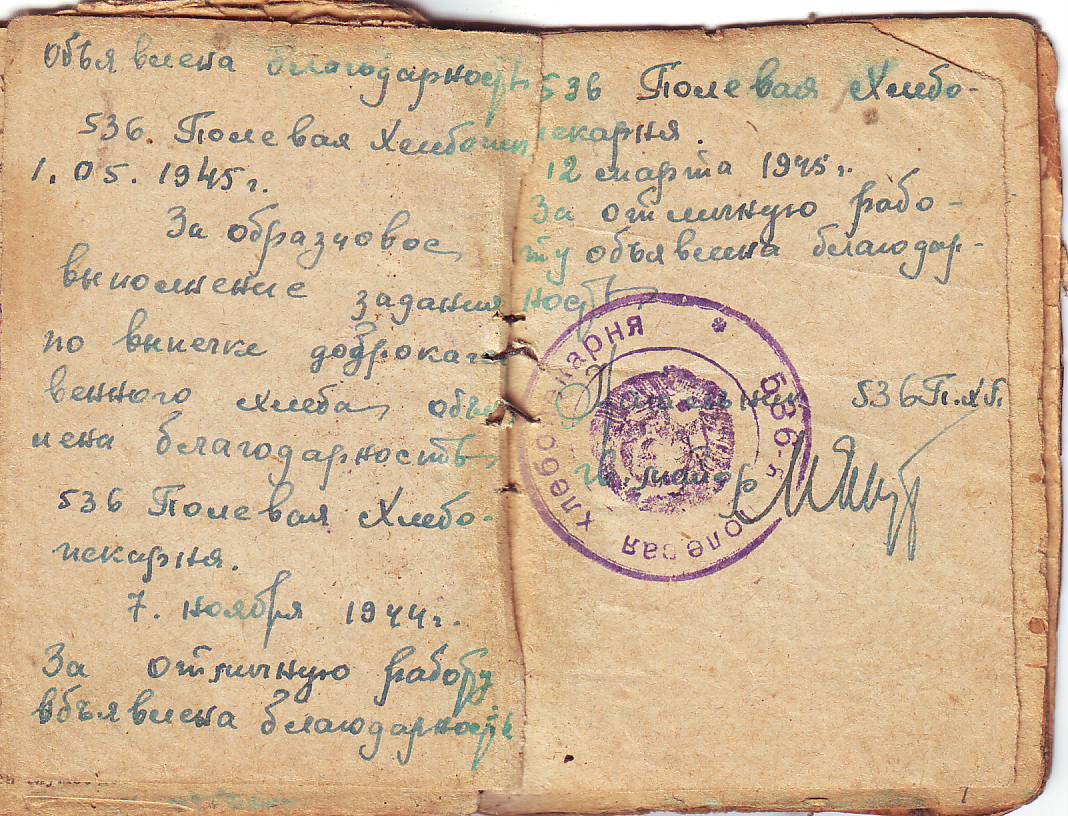 Объявлена благодарность
536. Полевая Хлебопек
1.05.1945г.
За образцовое
выполнение задания
по выпечке доброкачест
венного хлеба объяв
лена благодарность
536 Полевая Хлебо-
пекарня.
7. ноября 1944г.
За отличную работу
объявлена благодарность
536 Полевая Хлебо-
пекарня.
12 марта 1945г.
За отличную рабо-
ту объявлена благодар-
ность
Начальник 536 П.х.б.
гв. майор
536-я полевая хлебопекарня